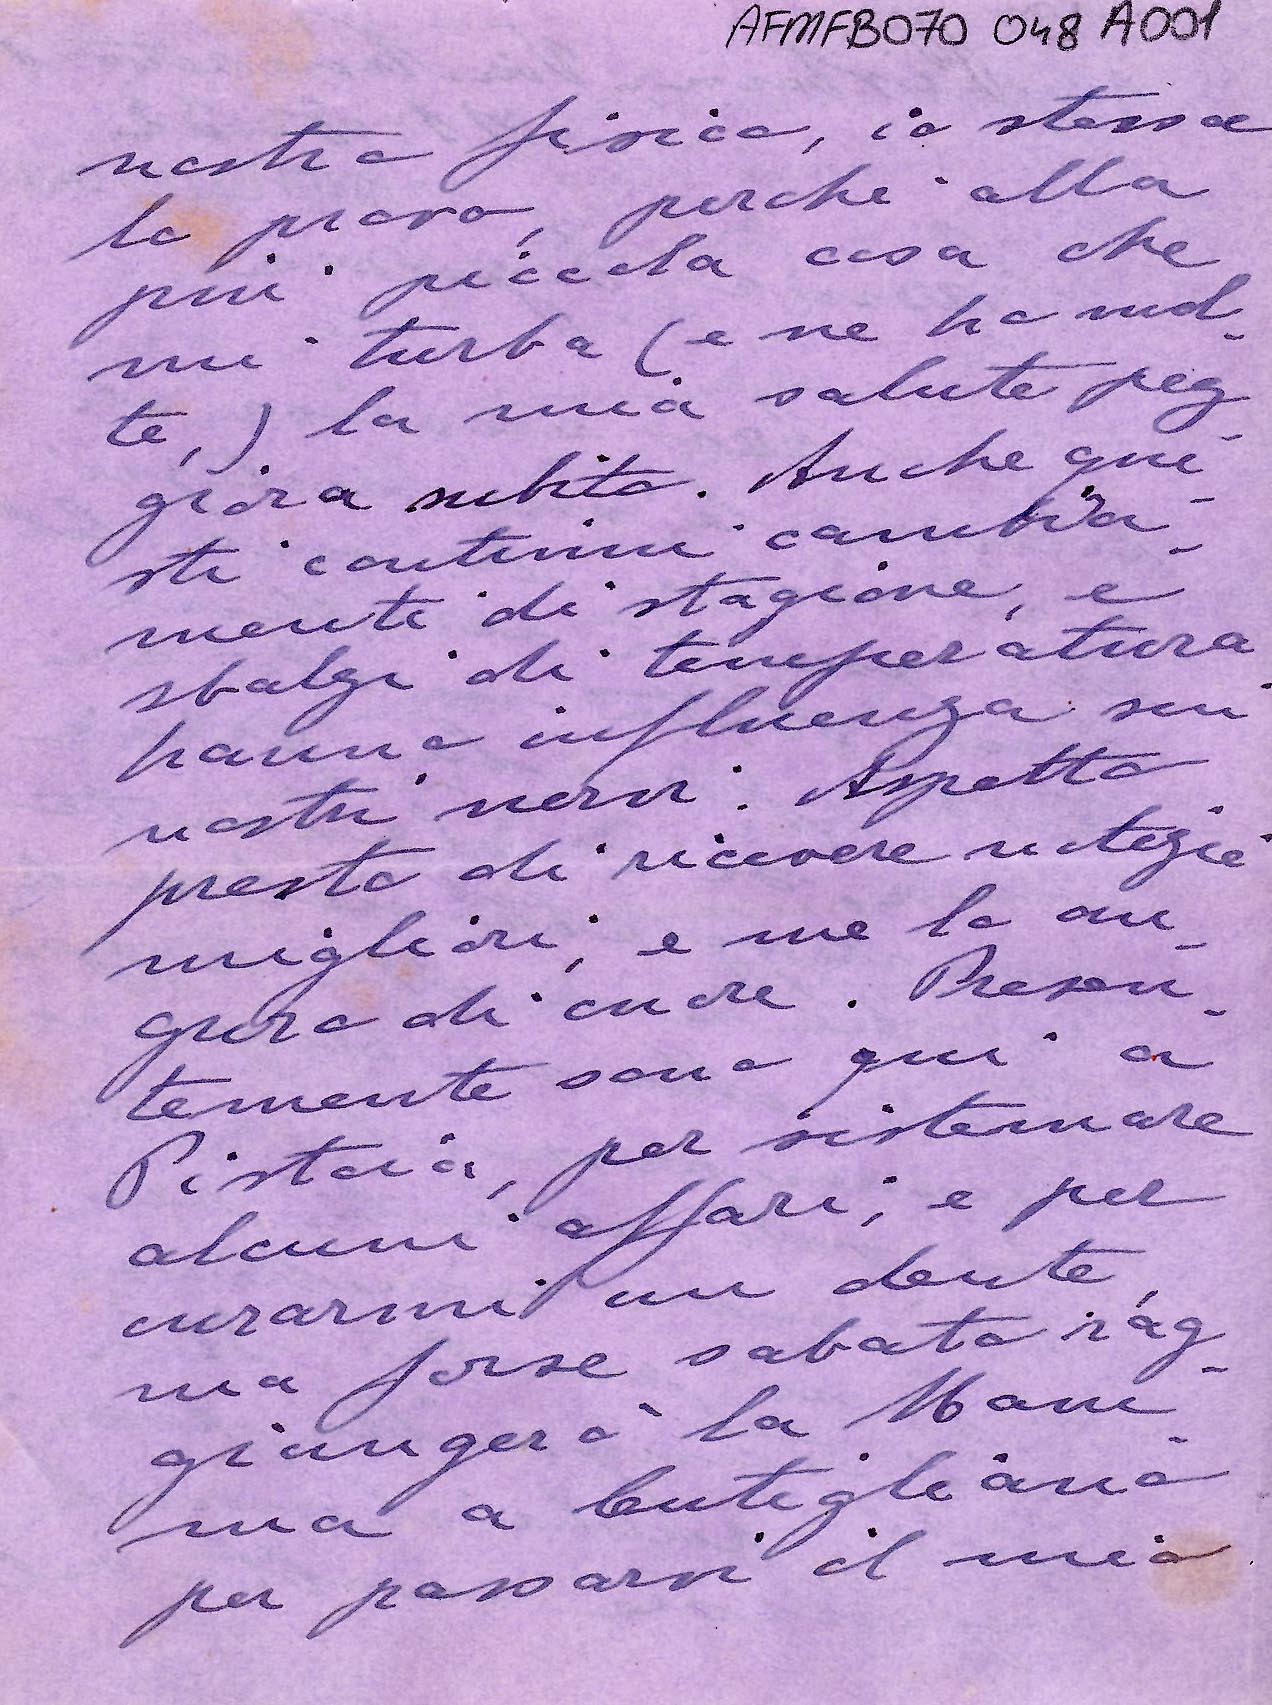 AFMFB070 048 A001
nostro fisico, io stessa
lo provo, perché alla
più piccola cosa che
mi turba (e ne ho mol-
te,) la mia salute peg-
giora subito. Anche que-
sti continui cambia-
menti di stagione, e
sbalzi di temperatura
hanno influenza sui
nostri nervi. Aspetto
presto di ricevere notizie
migliori, e me lo au-
guro di cuore. Presen-
temente sono qui a
Pistoia, per sistemare
alcuni affari, e per
curarmi un dente,
ma forse sabato rag-
giungerò la Mam-
ma a Cutigliano
per passarvi il mio